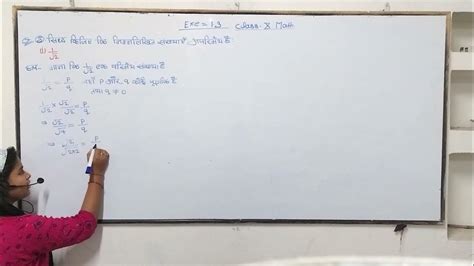 Exe = 1.3 Class-X Math
Q. ③ सिद्ध कीजिए कि निम्नलिखित संख्याएँ अपरिमेय हैं
(i) 1/√2
हल- माना कि 1/√2 एक परिमेय संख्या है
1/√2 = P/q जहाँ P और q कोई पूर्णांक है
तथा q ≠ 0
1/√2 × √2/√2 = P/q
⇒ √2/√4 = P/q
⇒ √2/√2×2 = P